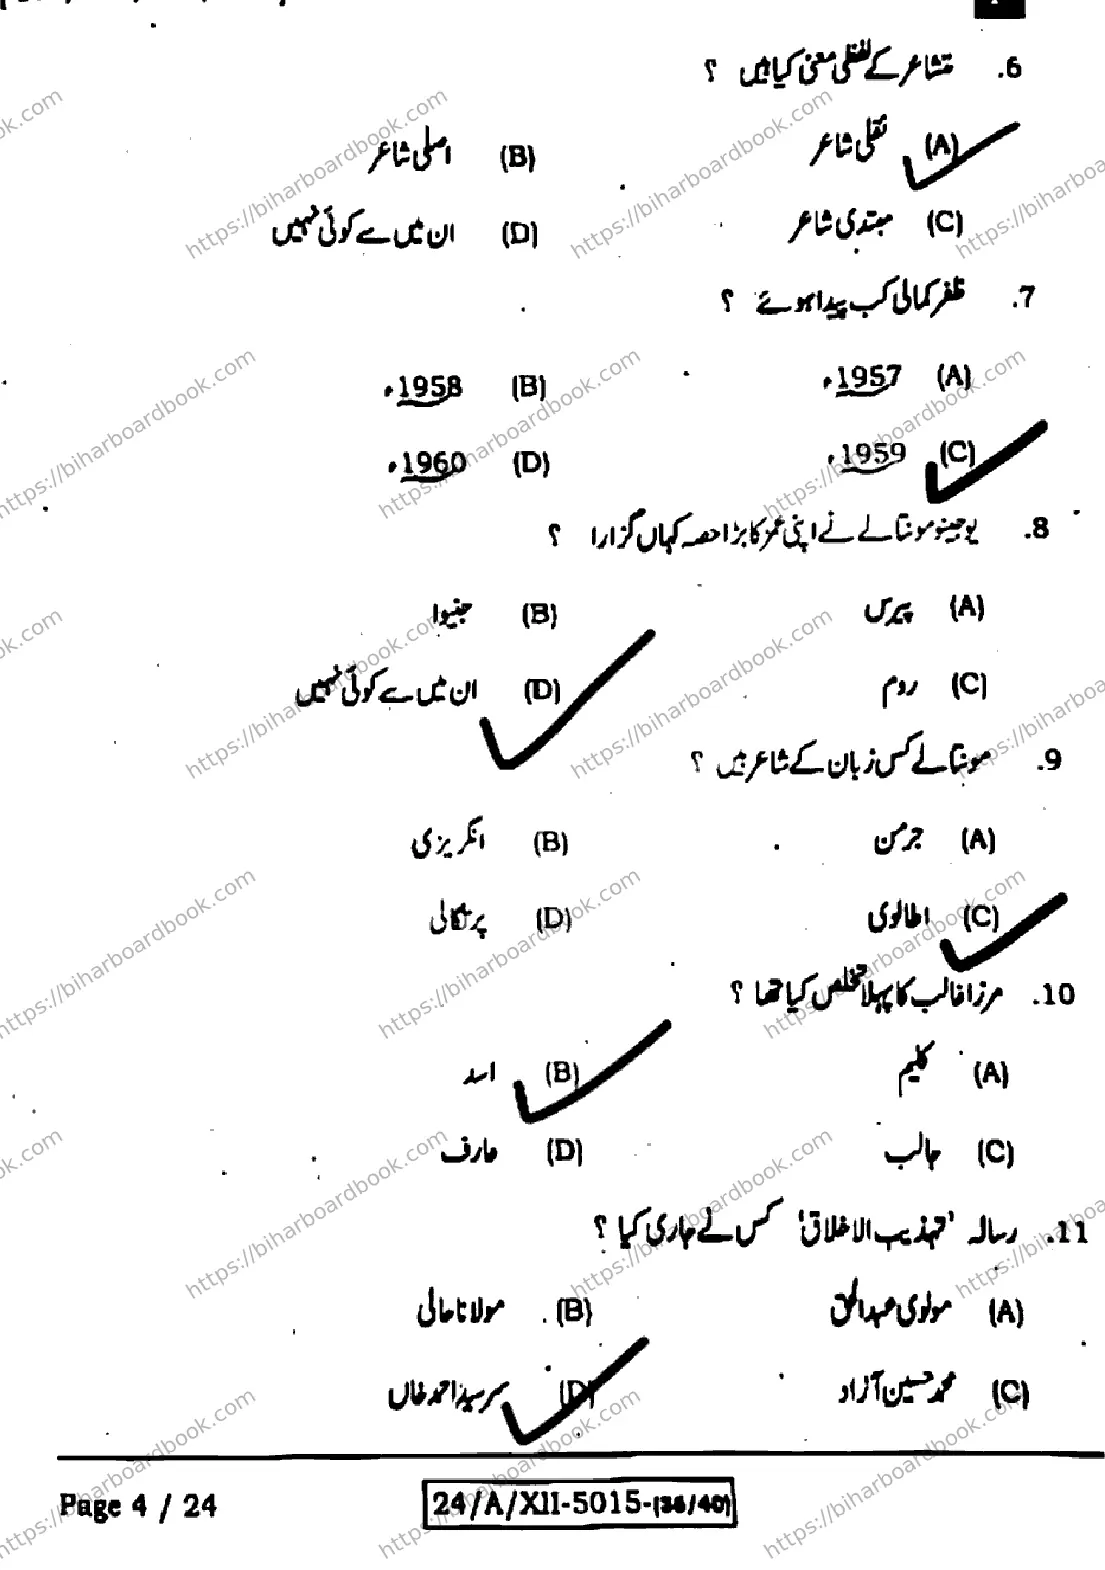 6. متشاعر کے لفظی معنی کیا ہیں ؟
(A) نقلی شاعر (B) اصلی شاعر
(C) مبتدی شاعر (D) ان میں سے کوئی نہیں
7. ظفر کمالی کب پیدا ہوئے ؟
(A) 1957ء (B) 1958ء
(C) 1959ء (D) 1960ء
8. یوجینیو مونتالے نے اپنی عمر کا بڑا حصہ کہاں گزارا ؟
(A) پیرس (B) جنیوا
(C) روم (D) ان میں سے کوئی نہیں
9. مونتالے کس زبان کے شاعر ہیں ؟
(A) جرمن (B) انگریزی
(C) اطالوی (D) پرتگالی
10. مرزا غالب کا پہلا تخلص کیا تھا ؟
(A) کلیم (B) اسد
(C) جالب (D) عارف
11. رسالہ 'تہذیب الاخلاق' کس نے جاری کیا ؟
(A) مولوی عبدالحق (B) مولانا حالی
(C) محمد حسین آزاد (D) سر سید احمد خاں
Page 4 / 24 24/A/XII-5015-(36/40)
https://biharboardbook.com